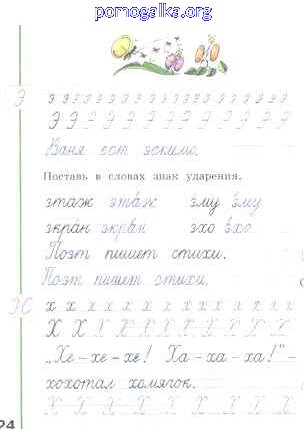 pomogalka.org
Э
Э Э Э Э Э Э Э Э Э Э Э Э Э Э Э Э Э
Э Э Э Э Э Э Э Э Э Э
Ваня ест эскимо.
Поставь в словах знак ударения.
этаж эта́ж эму э́му
экран экра́н эхо э́хо
Поэт пишет стихи.
Поэт пишет стихи.
Х
х х х х х х х х х х х х х
Х Х Х Х Х Х Х Х Х Х
„Хе – хе – хе! Ха – ха – ха!“ –
хохотал хомячок.
Х Х Х Х Х Х Х Х
24